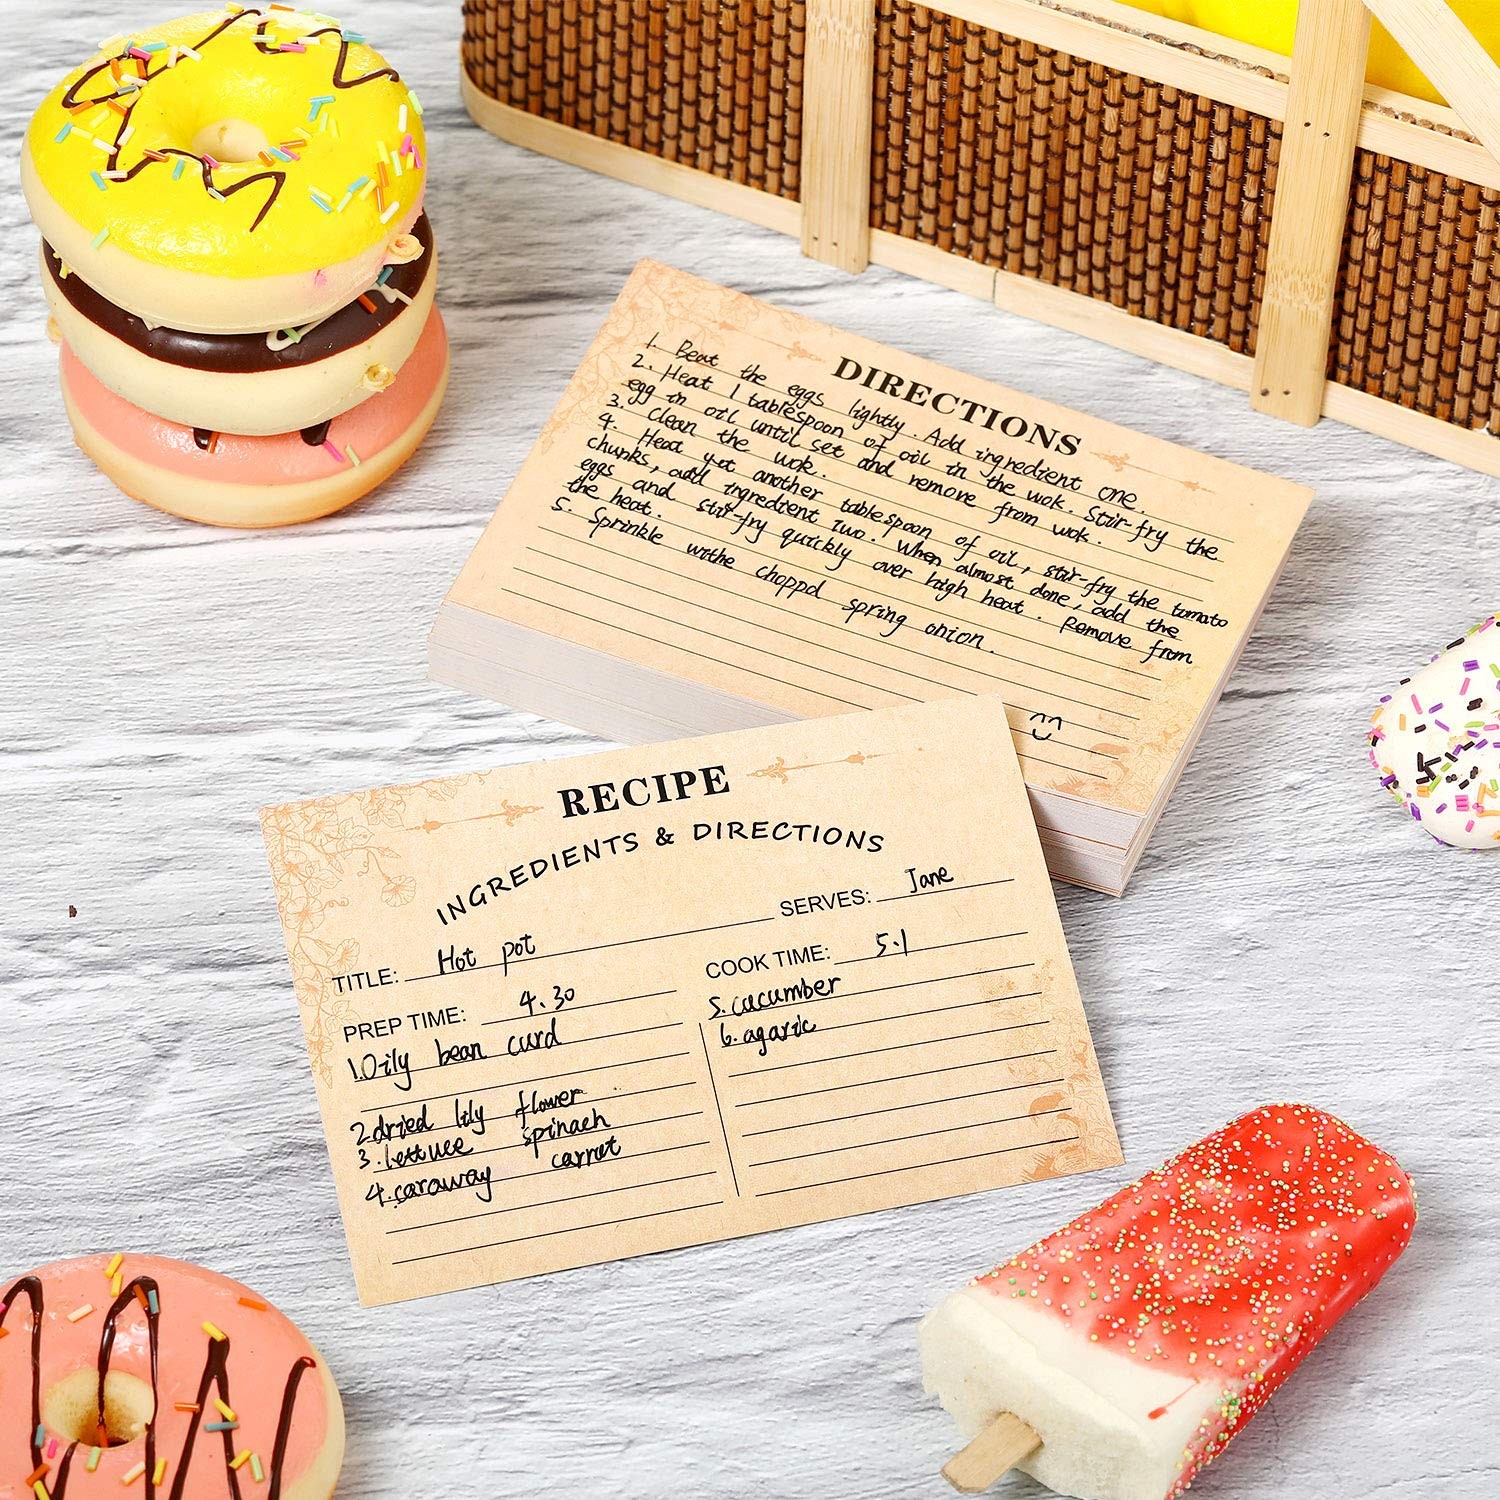 DIRECTIONS
1. Beat the eggs lightly. Add ingredient one.
2. Heat 1 tablespoon of oil in the wok. Stir-fry the
egg in oil until set and remove from wok.
3. Clean the wok.
4. Heat yet another tablespoon of oil, stir-fry the tomato
chunks, add ingredient two. When almost done, add the
eggs and stir-fry quickly over high heat. Remove from
the heat.
5. Sprinkle withe choppd spring onion.
RECIPE
INGREDIENTS & DIRECTIONS
TITLE: Hot pot SERVES: Jane
PREP TIME: 4.30 COOK TIME: 5.1
1.Oily bean curd
2.dried lily flower
3.lettuce spinach
4.caraway carret
5.cucumber
6.agaric